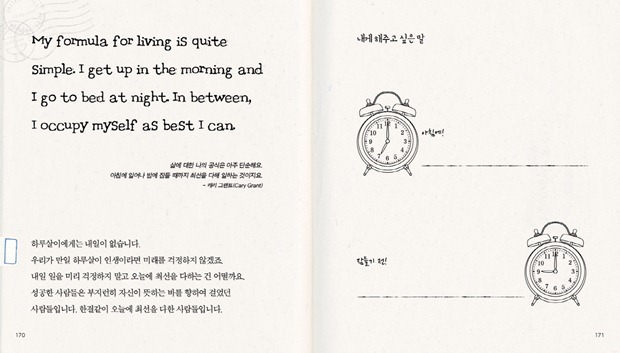 My formula for living is quite
simple. I get up in the morning and
I go to bed at night. In between,
I occupy myself as best I can.
삶에 대한 나의 공식은 아주 단순해요.
아침에 일어나 밤에 잠들 때까지 최선을 다해 일하는 것이지요.
- 캐리 그랜트(Cary Grant)
하루살이에게는 내일이 없습니다.
우리가 만일 하루살이 인생이라면 미래를 걱정하지 않겠죠.
내일 일을 미리 걱정하지 말고 오늘에 최선을 다하는 건 어떨까요.
성공한 사람들은 부지런히 자신이 뜻하는 바를 향하여 걸었던
사람들입니다. 한결같이 오늘에 최선을 다한 사람들입니다.
170
내게 해주고 싶은 말
12 1 2 3 4 5 6 7 8 9 10 11
아침에!
12 1 2 3 4 5 6 7 8 9 10 11
잠들기 전!
171